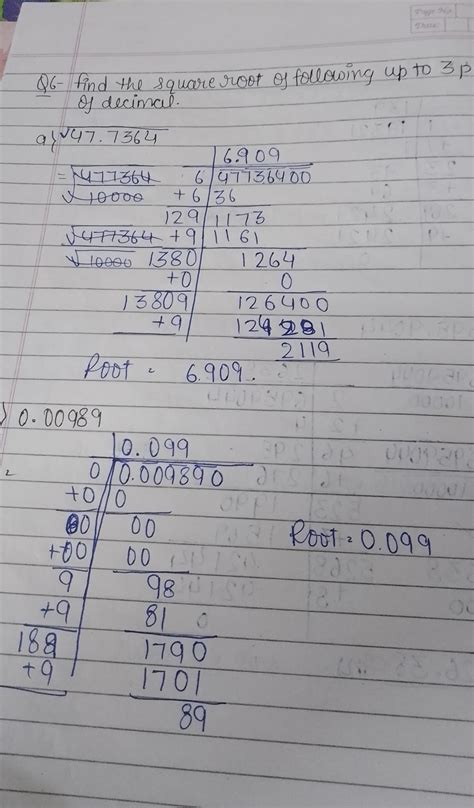 Page No.
Date:
Q6- find the square root of following up to 3 p
of decimal.
a) √47.7364
6.909
= √477364 6 47736400
√10000 +6 36
129 1173
√477364 +9 1161
√10000 1380 1264
+0 0
13809 126400
+9 124281
2119
Root = 6.909.
) 0.00989
0.099
0 0.009890
+0 0
00 00 Root = 0.099
+00 00
9 98
+9 81 0
188 1790
+9 1701
89